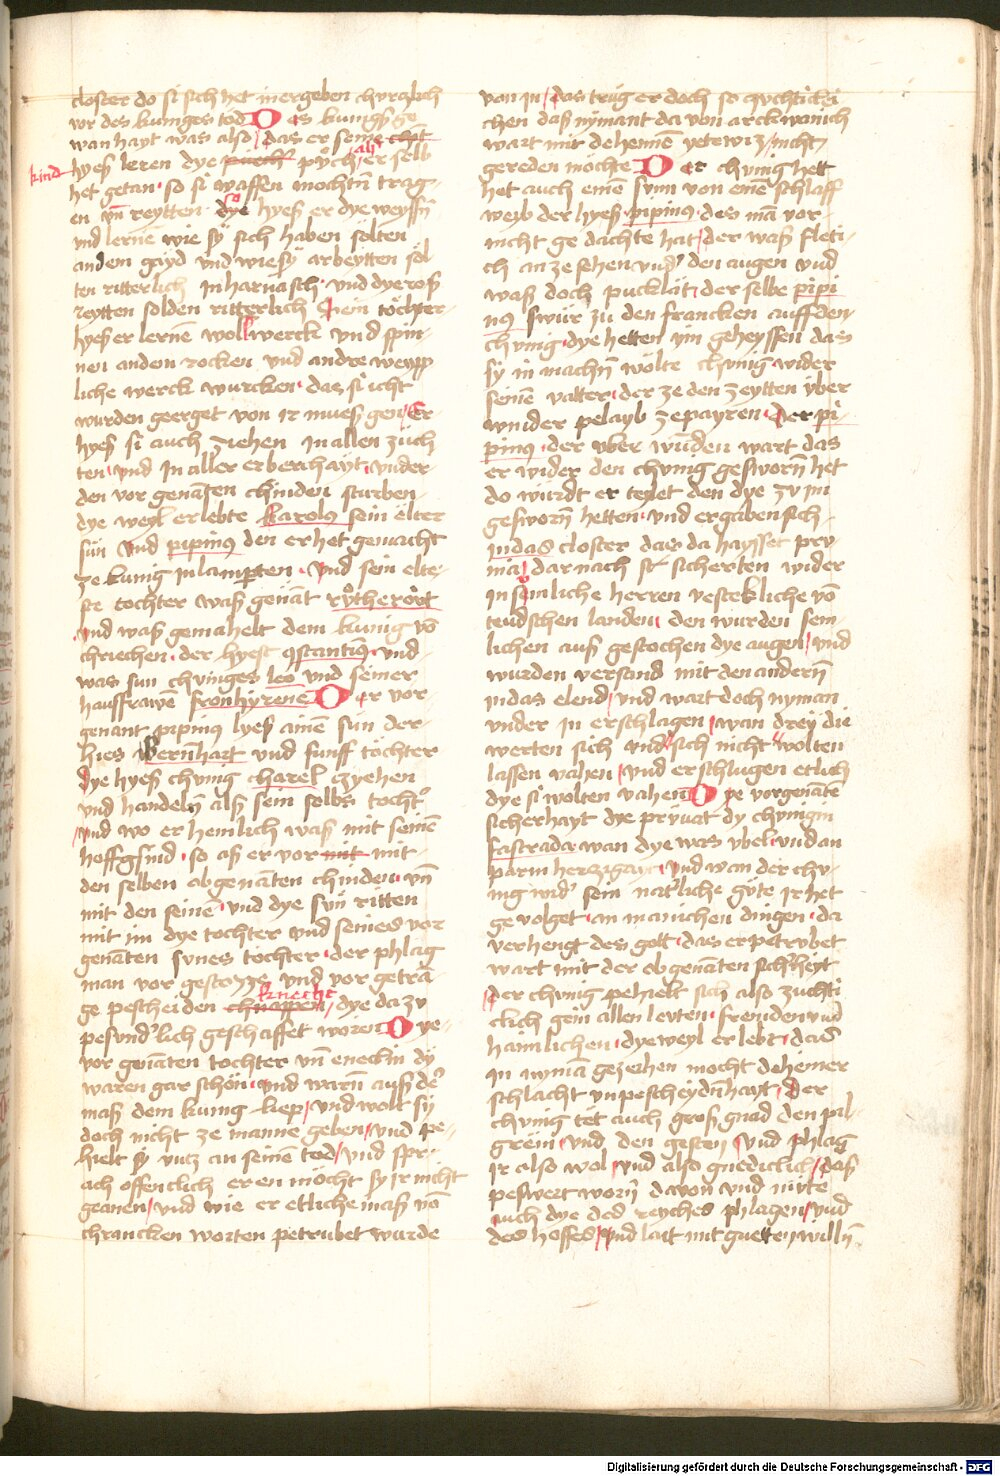 closter do si sich het in ergeben churczlich
vor des kuniges tod Des kunigs ge
wan hayt was also / das er seine chint
kind
hyeß leren dye puech püch / als er selb
het getan · so si waffen mochtn̄ trag-
en vn̄ reytten · dye so hyeß er dye weysn̄
vnd lernē wie sÿ sich haben solten
an dem gayd vnd wie sÿ arbeytten söl
ten ritterlich In harnasch · vnd dye roß
reytten solden ritterlich Sein töchter-
hyeß er lernē wollwerck vnd spin-
nen an dem rocken vnd andre weypp
liche werck wurcken · das si icht
wurden geerget von ir mueß gen / Er
hyeß si auch ziehen In allen züch
ten · vnd In aller erberchayt · vnder-
den vor genāten chinden sturben-
dye weyl er lebte karolus sein elter
sün vnd pipinus den er het gemacht
ze kunig in lamperten · vnd sein elte-
ste tochter waß genāt rötherört
vnd waß gemahelt dem kunig vō
chriechen · der hyeß 9stantinus · vnd-
was sun chuniges leo vnd seiner
haussfrawē fron hyrene Der vor-
genant pipinus lyeß ainē sun der-
hies Bernhart vnd funff tochter
dye hyeß chunig charel czyehen
vnd handeln̄ alß sein selbs tocht̄
vnd wo er heimlich waß mit seinē
hoffgsind · so aß er vor mit mit-
den selben abgenāten chinden · vn̄
mit den seinē · vnd dye sün ritten
mit im dye tochter vnd seines vor
genāten sunes tochter · der phlag
man vor gestozze vnd vor geträ-
knecht
ge pescheiden chnappen / dye da zu
pesund'lich geschaffet woren Dye-
vor genāten tochter vnd enecklin dy
waren gar schön · vnd warn̄ auß de'
maß dem kunig liep / vnd wolt sÿ
doch nicht ze manne geben / vnd pe-
hielt sÿ vntz an seinē tod / vnd spr-
ach offenlich er en möcht sÿ ir nicht
geanen / vnd wie er etliche maß võ
chrancken worten petrubet wurde
van in / das trüg er doch so gvchtickli
chen das nÿmant da von arckwanich
wart mit dehennē yetewiz / nicht-
gereden möchte Der chunig hett
het auch einē sunn von einē schlaff
weyb der hyeß pipinus · des mā vor-
nicht ge dachte hat / der waß fleti-
ch an ze sehen vnd' den augen vnd
waß doch pucklät · der selbe pipi
nus swür zu den francken auff den-
chunig · dye hetten im geheyssen das
sÿ in machn̄ wölte chunig wider
seinē vatter · der ze den zeytten vber
wnider pelayb ze payren · der pi-
pinus · der vber wunden wart das
er wider den chunig gesworn̄ het
do würdt er teylet den dye zv im
gesworn̄ hetten · vnd ergaben sich-
in das closter das da haysset pru-
mia / dar nach si sicherten wider
in sömliche herren vestekliche võ
teudschen landen · den wurden sem-
lichen auß gestochen dye augen / vnd
wurden versand mit den andern̄
in das elend / vnd wart doch nyman
vnder in erschlagen / wan dreÿ die
werten sich vnd sich nicht wolten
lassen vahen / vnd erschlugen etlich
dye si wolten vahen Dye vorgenāte
sicherhayt dye pruuat dy chunigin
fastrada wan dye was vbel · vnd an
parmherczigayt · vnd wan der chu-
nig wid' sein natlr̄liche güte ir het
ge volget · an manichen dingen · da
verhengt des gott · das er petrubet
wart mit der obgenāten sich'heyt
der chunig pehielt sich also zuchti
clich gein allen leuten · freuden vnd
haimlichen · dye weyl er lebt · das
in nymā gezeihen mocht deheiner
schlacht vnpescheydn̄hayt · Der
chunig tet auch groß gnad den pil-
grein · vnd den gesten / vnd phlag
ir also wol / vnd also guediclich / das
peswert worn̄ davon vnd mite
auch dye des reyches phlagen / vnd
des hoffes / vnd lait mit gutten willn̄
Digitalisierung gefördert durch die Deutsche Forschungsgemeinschaft - DFG